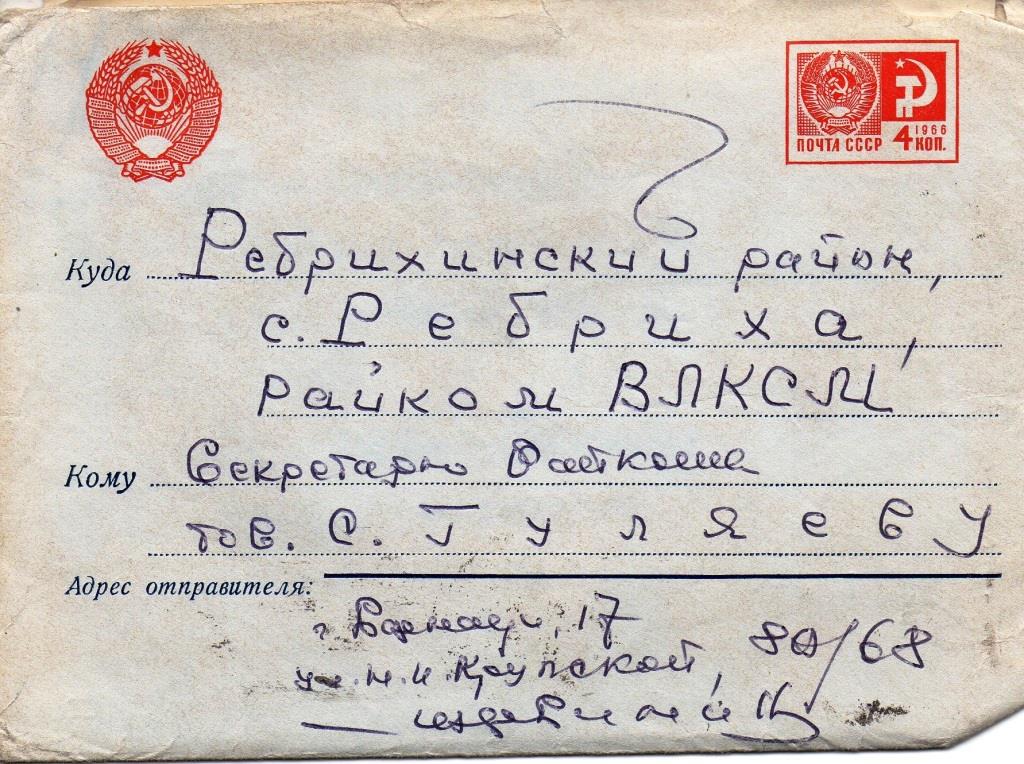 ПОЧТА СССР 4 1966 КОП.
Куда Ребрихинский район,
с. Ребриха,
райком ВЛКСМ
Кому Секретарю Райкома
тов. С. Гуляеву
Адрес отправителя:
г. Барнаул, 17
ул. Н. К. Крупской, 80/68